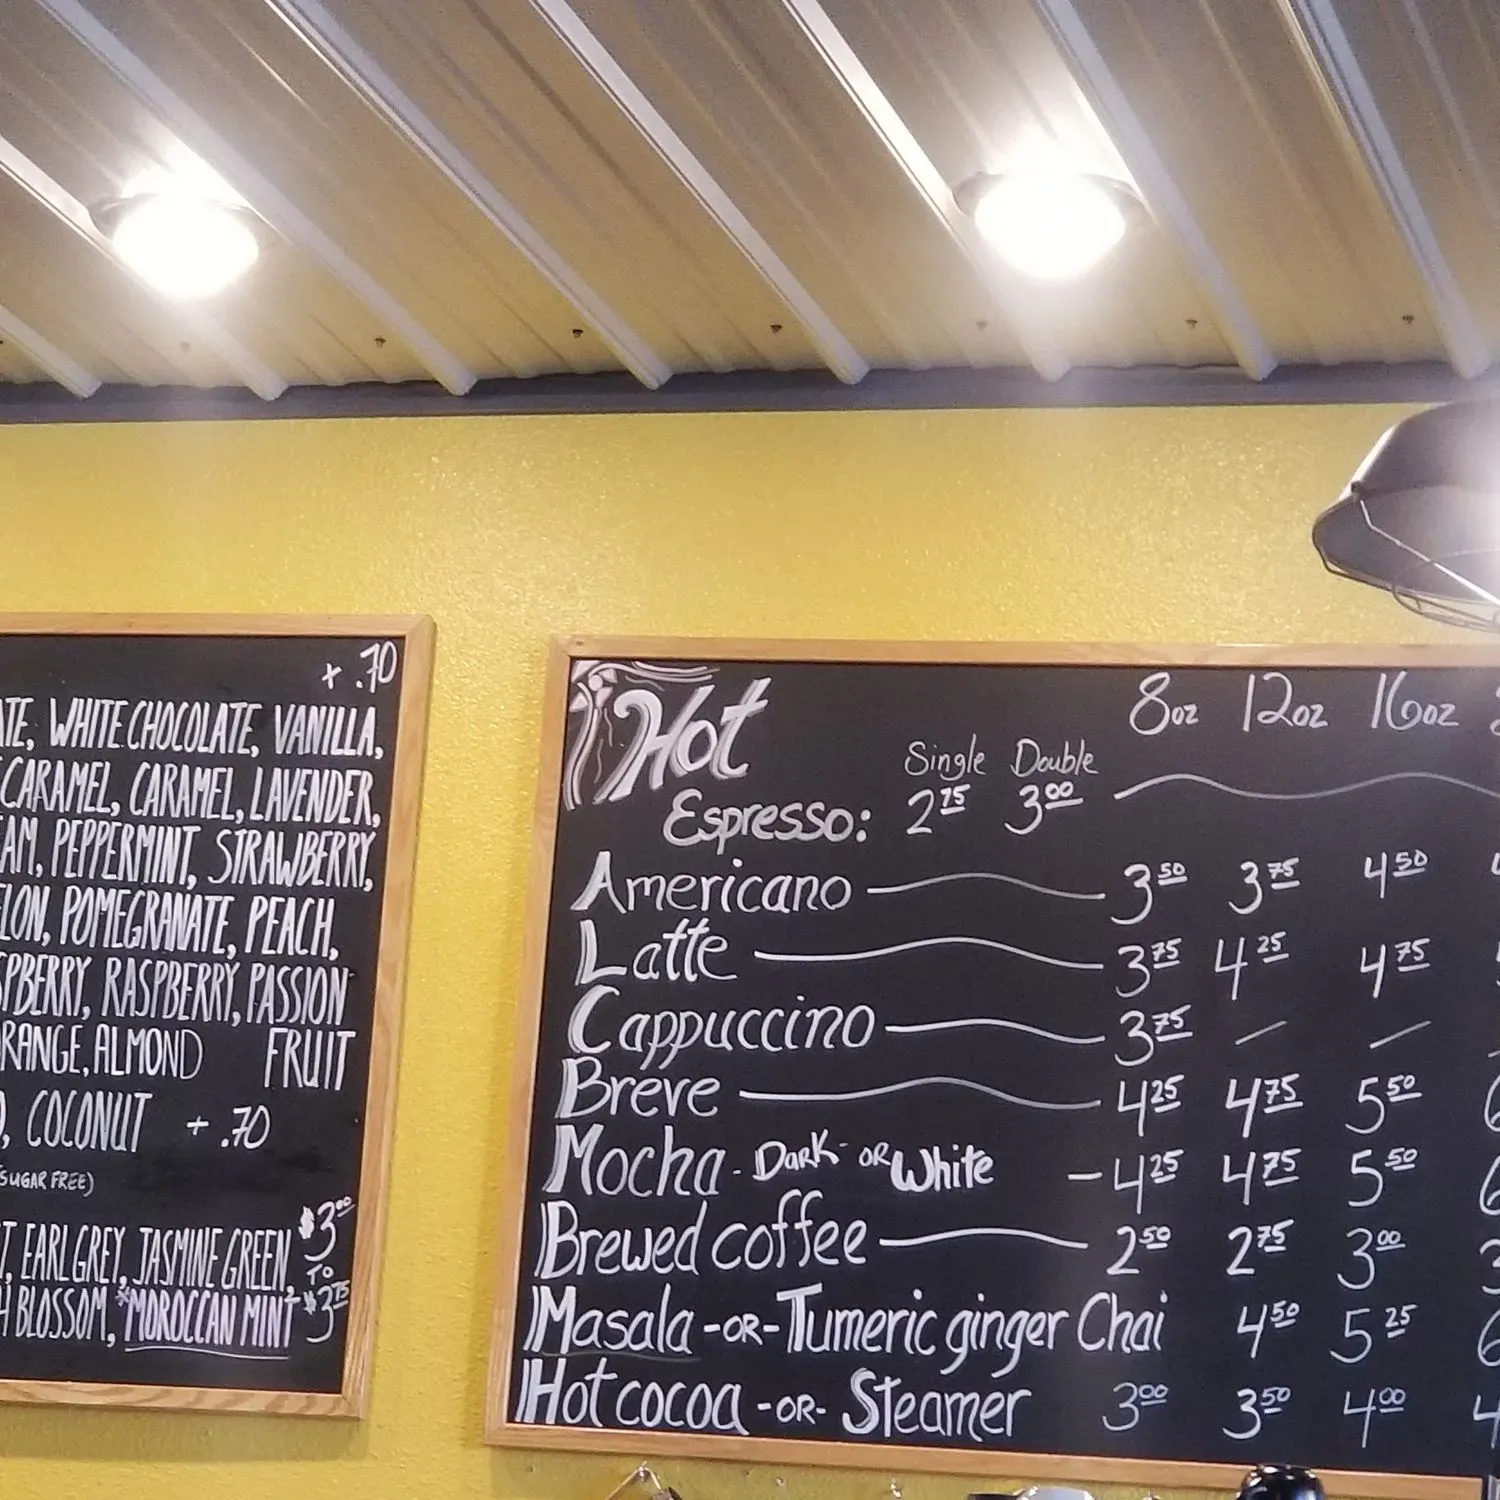 + .70
WHITE CHOCOLATE, VANILLA,
CARAMEL, CARAMEL, LAVENDER,
PEPPERMINT, STRAWBERRY,
POMEGRANATE, PEACH,
RASPBERRY, PASSION
ALMOND FRUIT
COCONUT + .70
(SUGAR FREE)
EARL GREY, JASMINE GREEN, $3.00
TO
BLOSSOM, *MOROCCAN MINT $3.75
Hot 8oz 12oz 16oz
Single Double
Espresso: 2.75 3.00
Americano 3.50 3.75 4.50
Latte 3.75 4.25 4.75
Cappuccino 3.75 - -
Breve 4.25 4.75 5.50
Mocha - Dark - or White - 4.25 4.75 5.50
Brewed coffee 2.50 2.75 3.00
Masala -OR- Tumeric ginger Chai 4.50 5.25
Hot cocoa -OR- Steamer 3.00 3.50 4.00